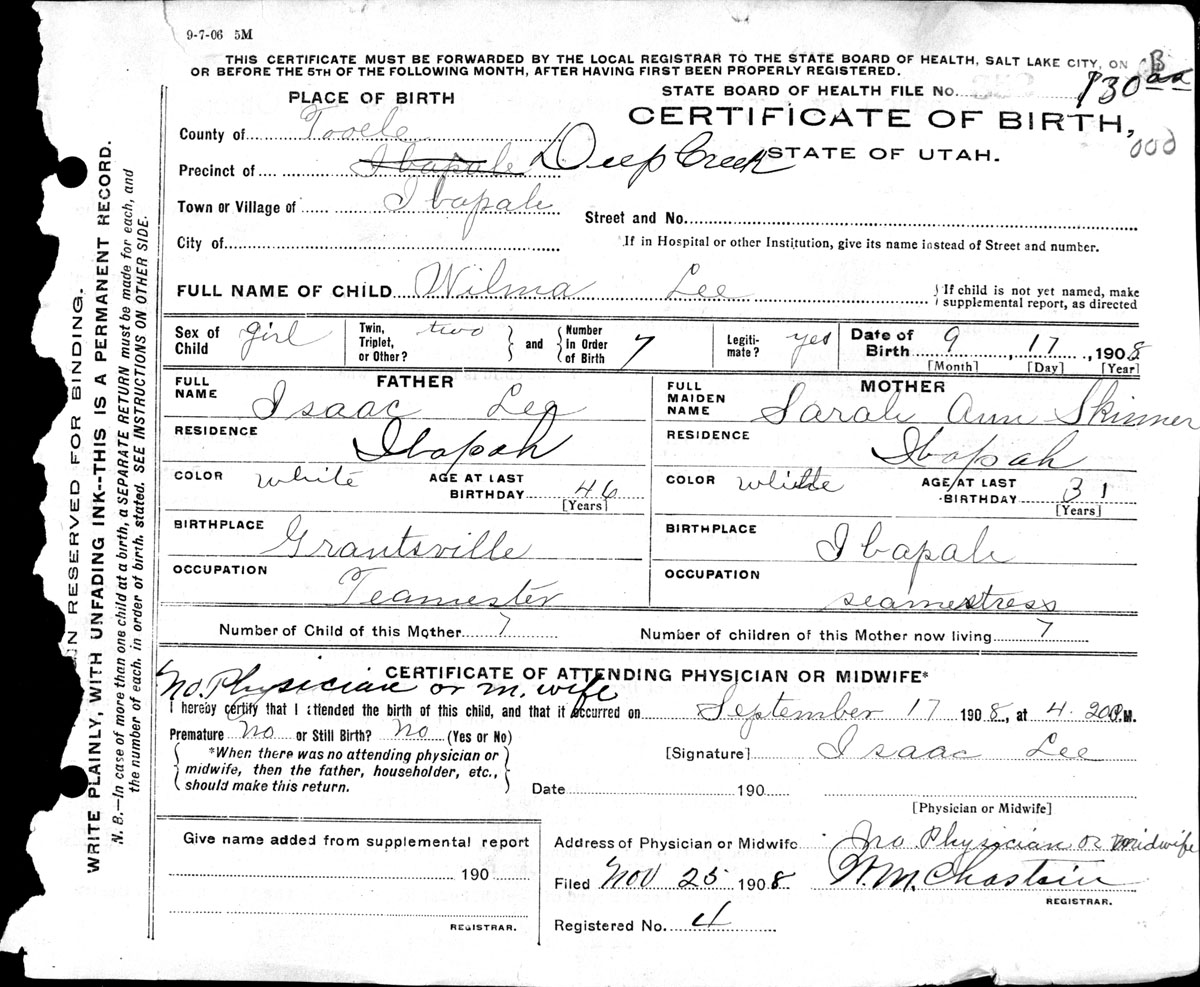 9-7-06 5M
THIS CERTIFICATE MUST BE FORWARDED BY THE LOCAL REGISTRAR TO THE STATE BOARD OF HEALTH, SALT LAKE CITY, ON
OR BEFORE THE 5TH OF THE FOLLOWING MONTH, AFTER HAVING FIRST BEEN PROPERLY REGISTERED.
B
STATE BOARD OF HEALTH FILE No. 130
PLACE OF BIRTH
CERTIFICATE OF BIRTH,
STATE OF UTAH.
000
County of Tooele
Precinct of Ibapah Deep Creek
Town or Village of Ibapah
Street and No.
City of
If in Hospital or other Institution, give its name instead of Street and number.
FULL NAME OF CHILD Wilma Lee
If child is not yet named, make
supplemental report, as directed
Sex of Child girl Twin, Triplet, or Other? two and Number In Order of Birth 7 Legiti-mate? yes Date of Birth 9, 17, 1908
[Month] [Day] [Year]
FATHER
FULL NAME Isaac Lee
RESIDENCE Ibapah
COLOR white AGE AT LAST BIRTHDAY 46
[Years]
BIRTHPLACE Grantsville
OCCUPATION Teamester
MOTHER
FULL MAIDEN NAME Sarah Ann Skinner
RESIDENCE Ibapah
COLOR white AGE AT LAST BIRTHDAY 31
[Years]
BIRTHPLACE Ibapah
OCCUPATION seamestress
Number of Child of this Mother 7 Number of children of this Mother now living 7
CERTIFICATE OF ATTENDING PHYSICIAN OR MIDWIFE*
No. Physician or m. wife
I hereby certify that I attended the birth of this child, and that it occurred on September 17 1908, at 4.20 P.M.
Premature No or Still Birth? No (Yes or No)
*When there was no attending physician or
midwife, then the father, householder, etc.,
should make this return.
[Signature] Isaac Lee
Date 190
[Physician or Midwife]
Give name added from supplemental report
190
REGISTRAR.
Address of Physician or Midwife no Physician or midwife
Filed Nov 25 1908 W.M. Chastain
REGISTRAR.
Registered No. 4
IN RESERVED FOR BINDING.
WRITE PLAINLY, WITH UNFADING INK--THIS IS A PERMANENT RECORD.
N. B.—In case of more than one child at a birth, a SEPARATE RETURN must be made for each, and
the number of each, in order of birth, stated. SEE INSTRUCTIONS ON OTHER SIDE.